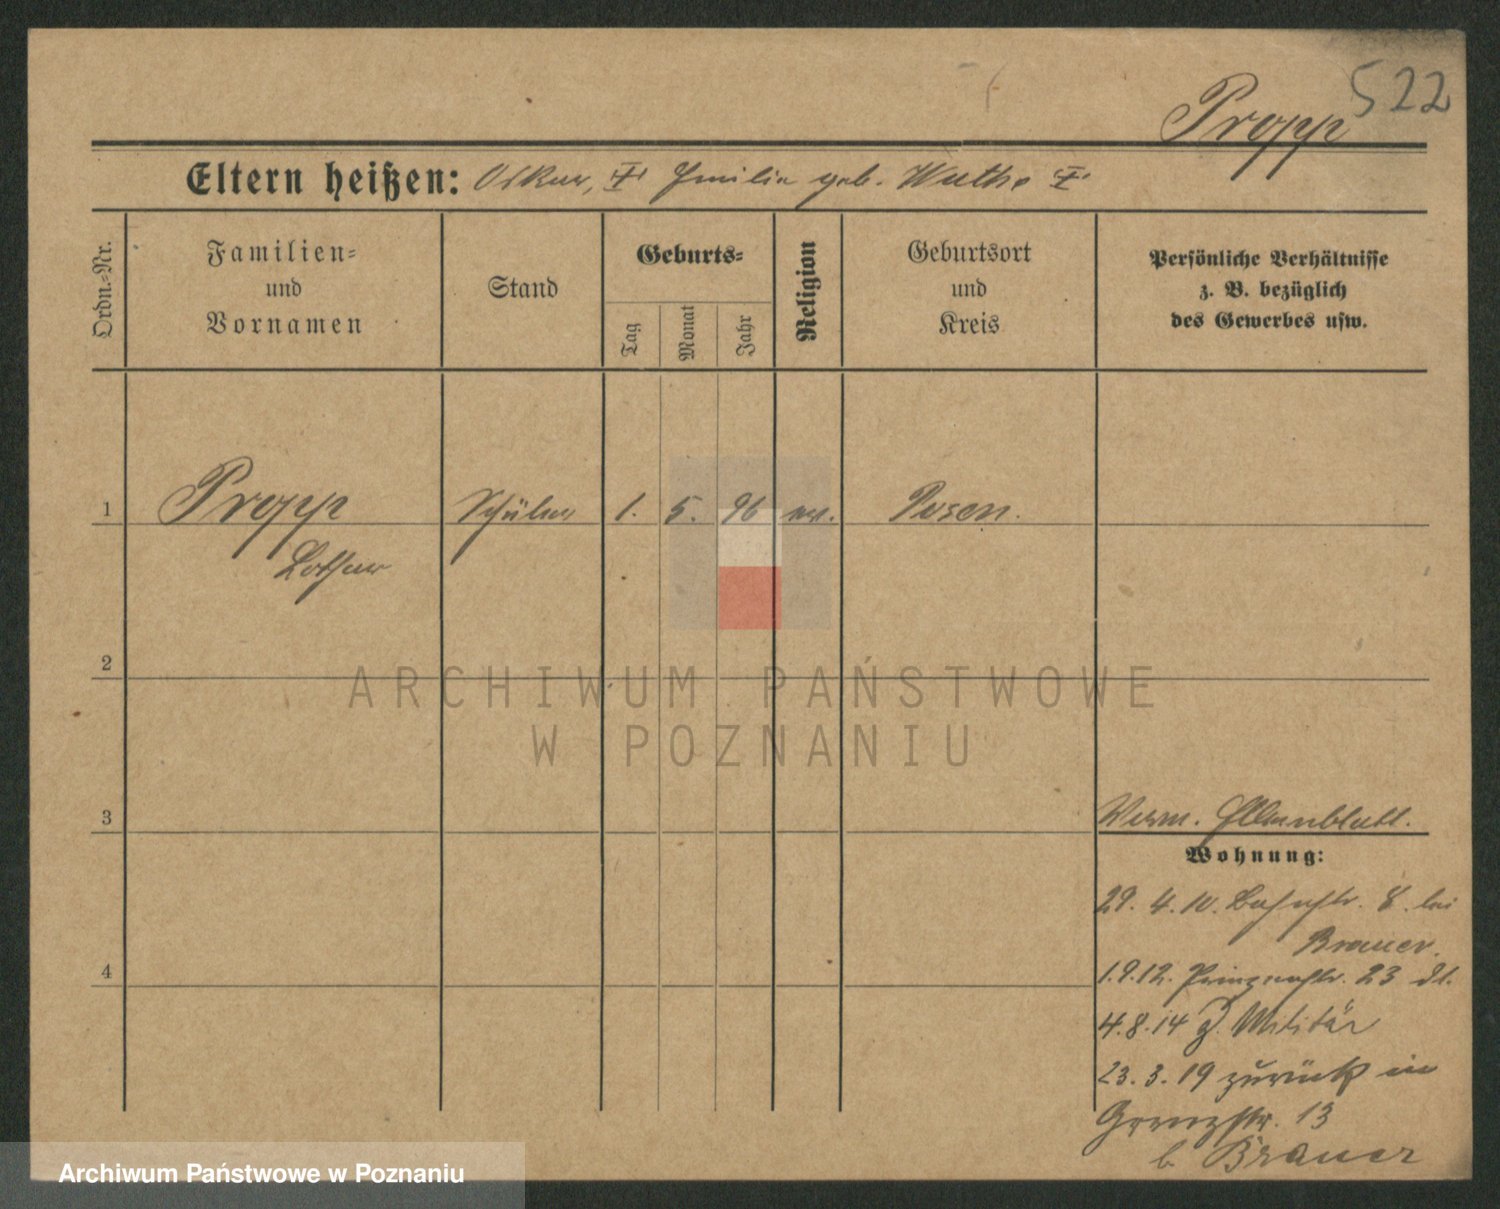 522
Propp
Eltern heißen: Oskar, Emilie geb. Wuthe
Ordn.-Nr.
Familien-
und
Vornamen
Stand
Geburts-
Tag
Monat
Jahr
Religion
Geburtsort
und
Kreis
Persönliche Verhältnisse
z. B. bezüglich
des Gewerbes usw.
1 Propp Schüler 1. 5. 96 ev. Posen.
Lothar
2
ARCHIWUM PAŃSTWOWE
W POZNANIU
3
Wohnung:
29. 4. 10. 8. bei
Brauer.
4
1.9.12. Prinzenstr. 23
4.8.14 z. Militär
23. 3. 19 zurück in
Grenzstr. 13
b Brauer
Archiwum Państwowe w Poznaniu